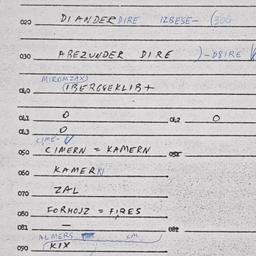 020 DI ANDER DIRE IZBESE- (306
030 ABEZUNDER DIRE )-DSIRE
MIROMZAX)
040 (IBERGSEKLIB+
041 0 042 0
043 0
CIME-
050 CIMERN = KAMERN 051
060 KAMERN
070 ZAL
080 FORHOJZ = FIRES
081 — 082
ALMERS KM
090 KIX